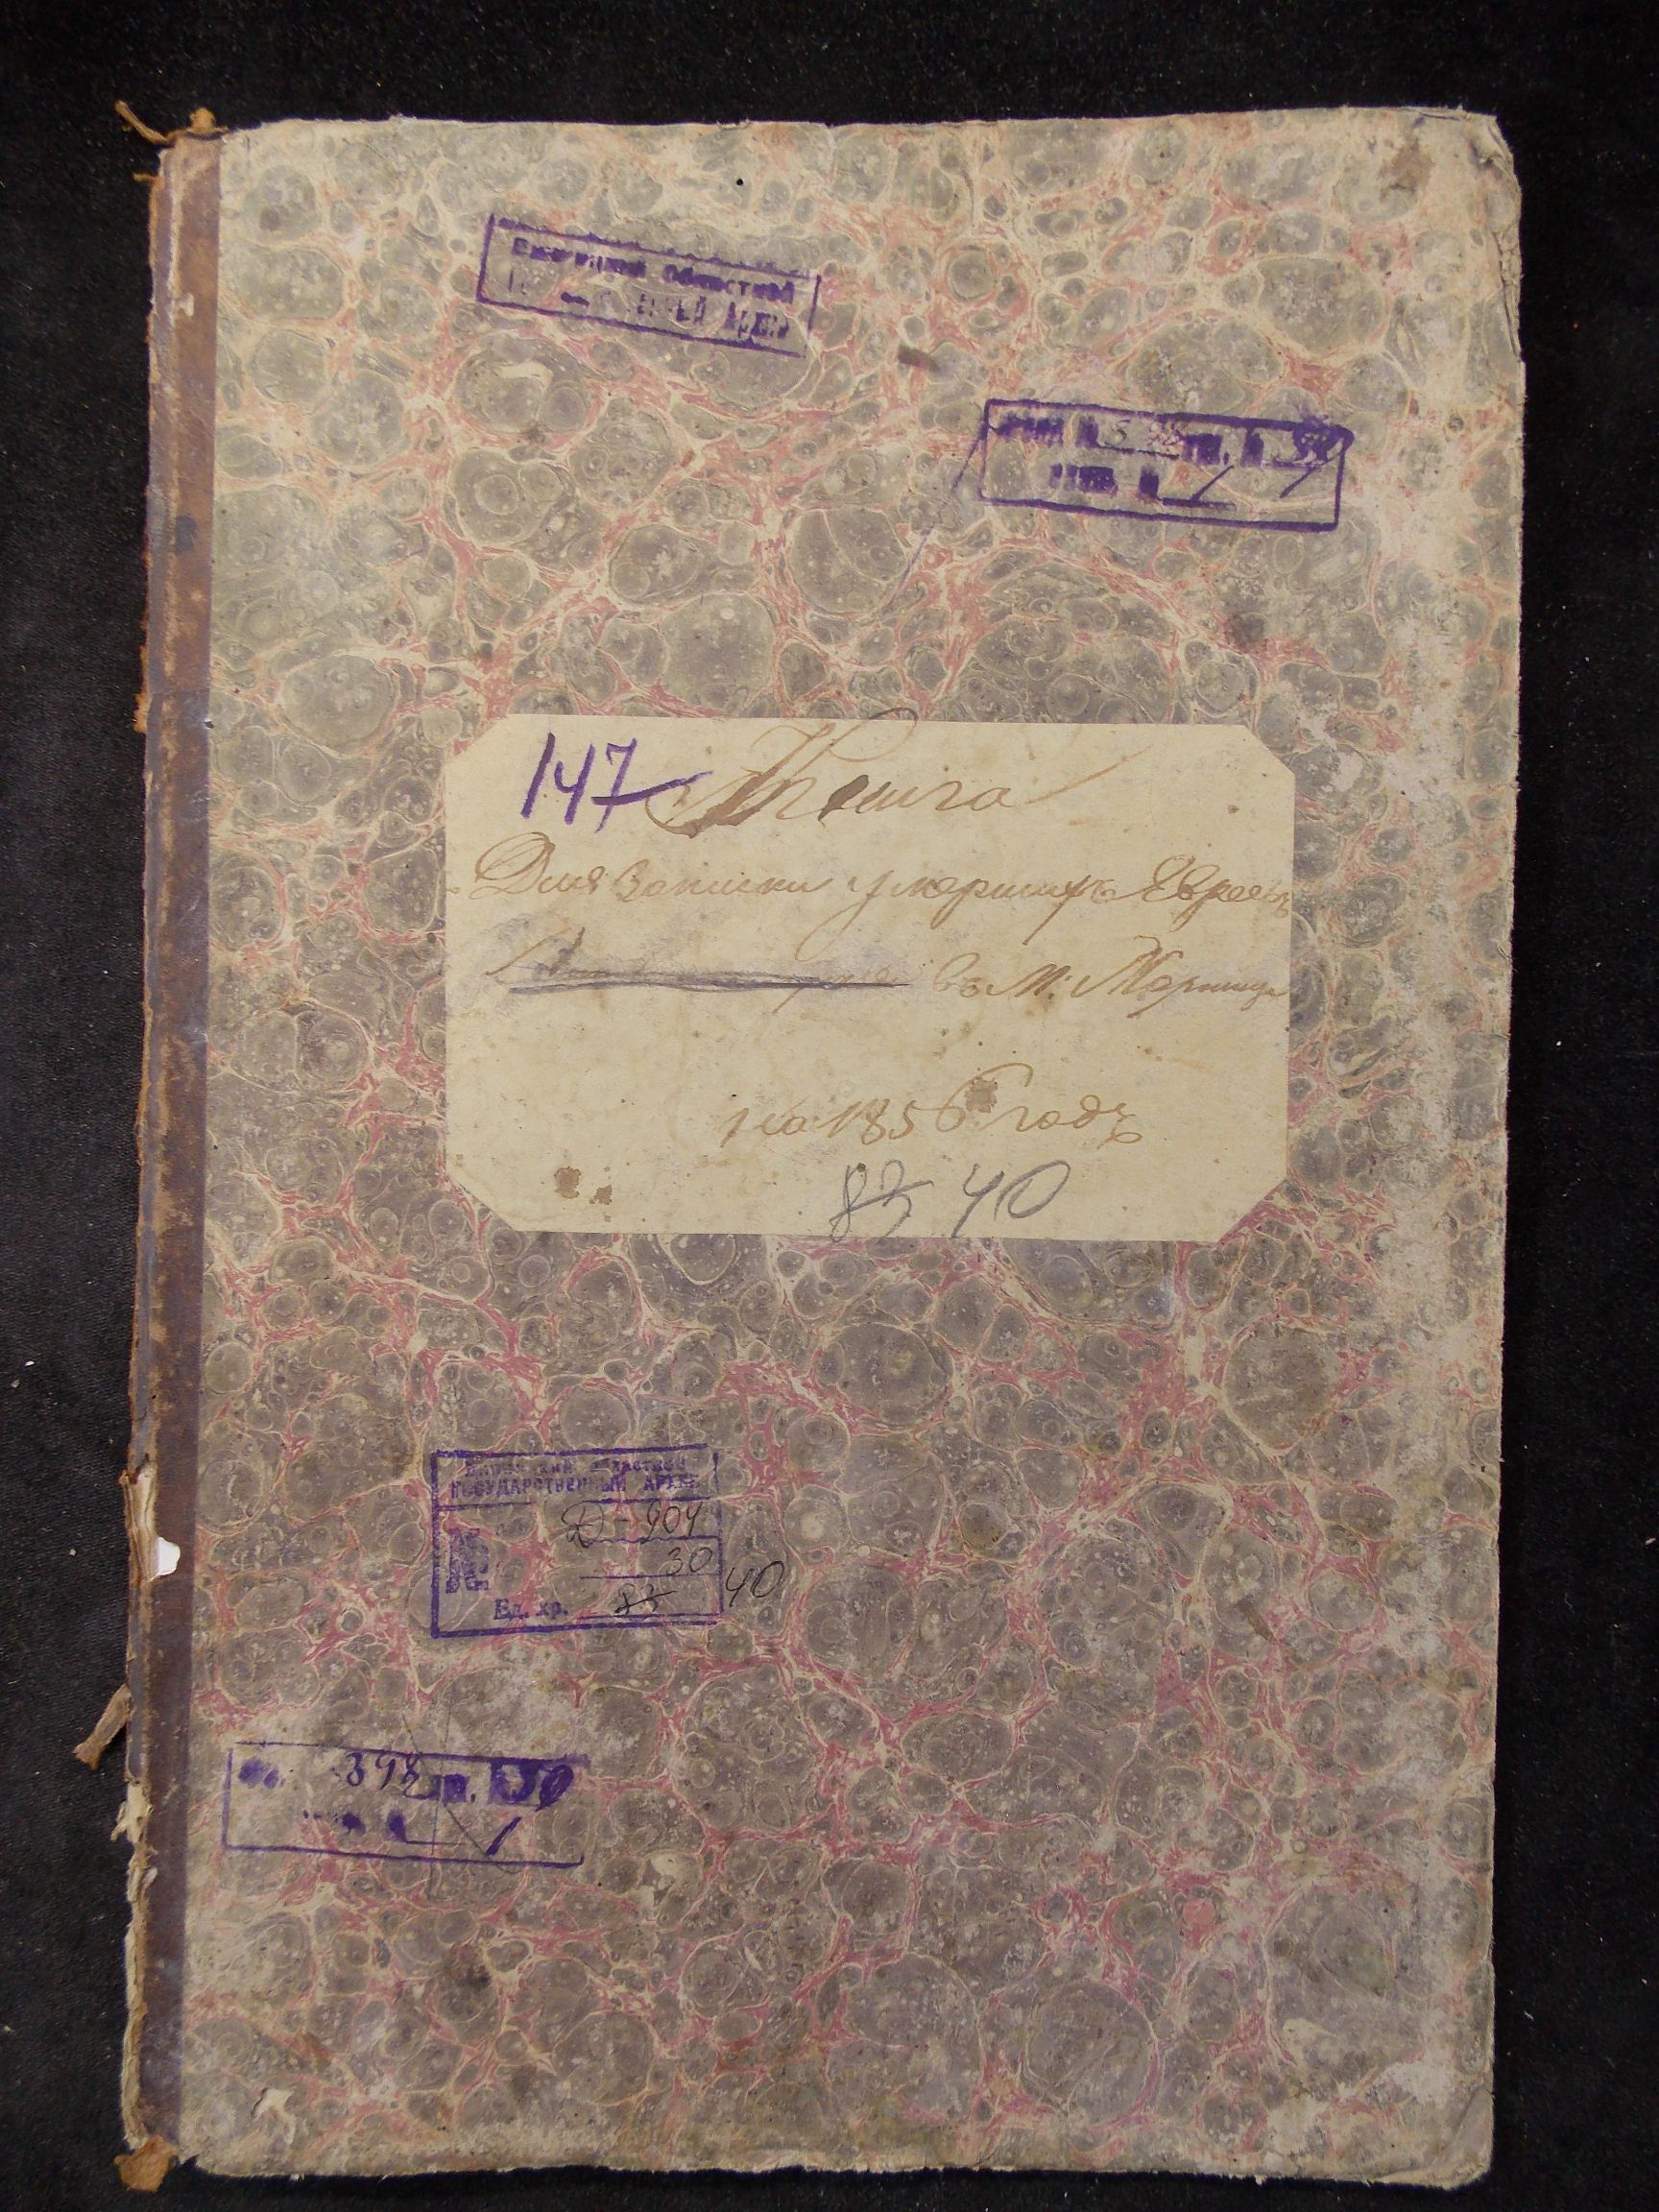 Винницкий Областной
Архив
398 оп. № 30
1
147
Книга
Для записки умершихъ Евреевъ
въ м:
на 1856 годъ
83 40
Винницкий Областной
ГОСУДАРСТВЕННЫЙ АРХИВ
№ Д-904
30
Ед. хр. 83 40
398 оп. 30
1